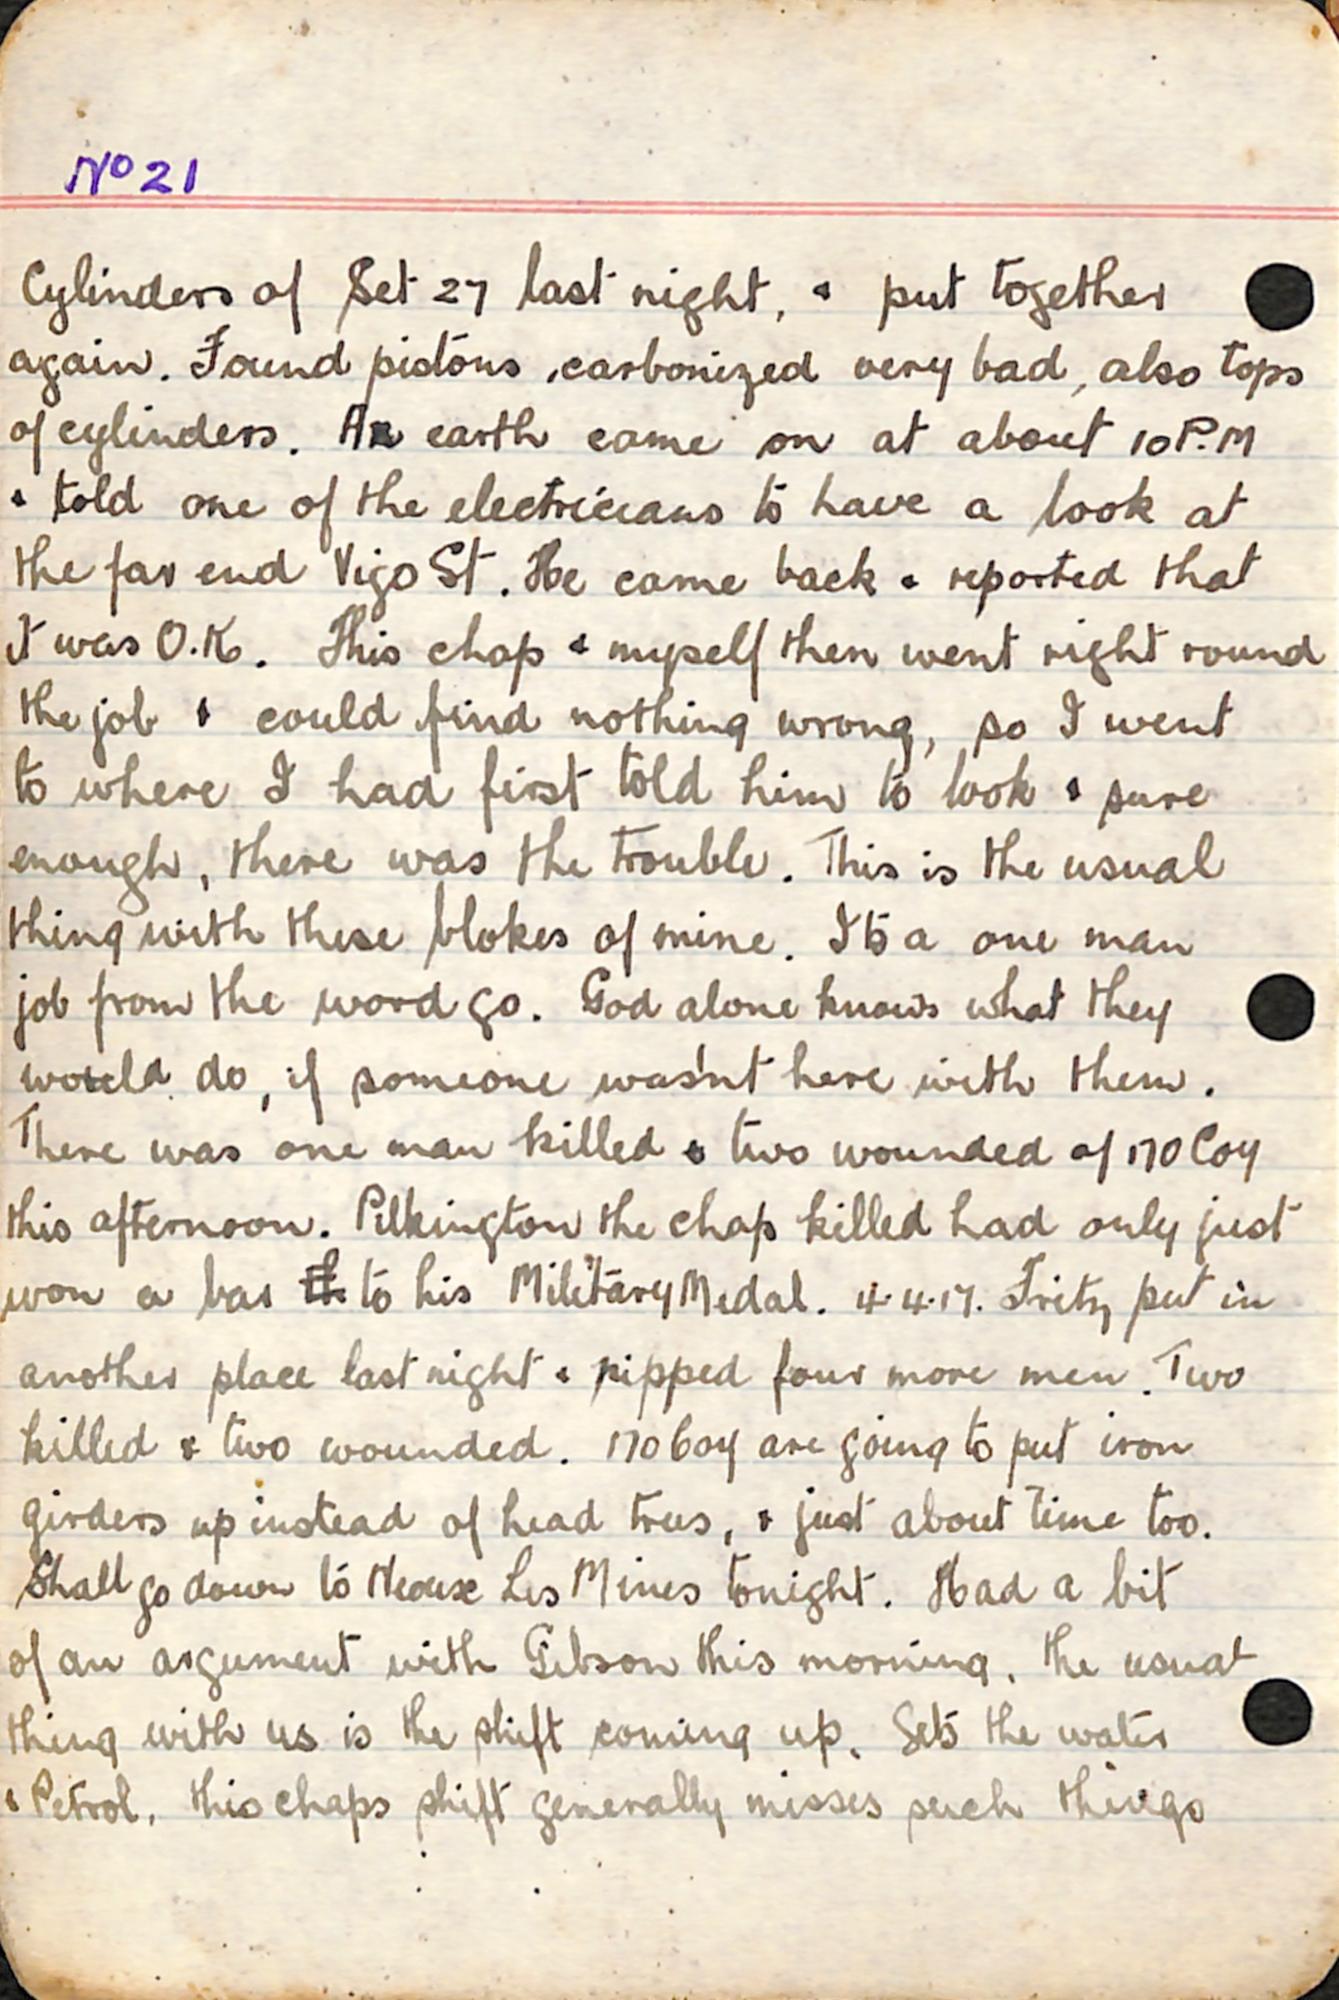 No 21
Cylinders of Set 27 last night, & put together
again. Found pistons carbonized very bad, also tops
of cylinders. An earth came on at about 10 P.M
& told one of the electricians to have a look at
the far end Vigo St. He came back & reported that
it was O.K. This chap & myself then went right round
the job & could find nothing wrong, so I went
to where I had first told him to look & sure
enough, there was the trouble. This is the usual
thing with these blokes of mine. Its a one man
job from the word go. God alone knows what they
would do, if someone was'nt here with them.
There was one man killed & two wounded of 170 Coy
this afternoon. Pilkington the chap killed had only just
won a bar th to his Military Medal. 4.4.17. Fritz put in
another place last night & nipped four more men. Two
killed & two wounded. 170 Coy are going to put iron
girders up instead of head trees, & just about time too.
Shall go down to Neoux Les Mines tonight. Had a bit
of an argument with Gibson this morning. the usual
thing with us is the shift coming up. Gets the water
& Petrol. this chaps shift generally misses such things